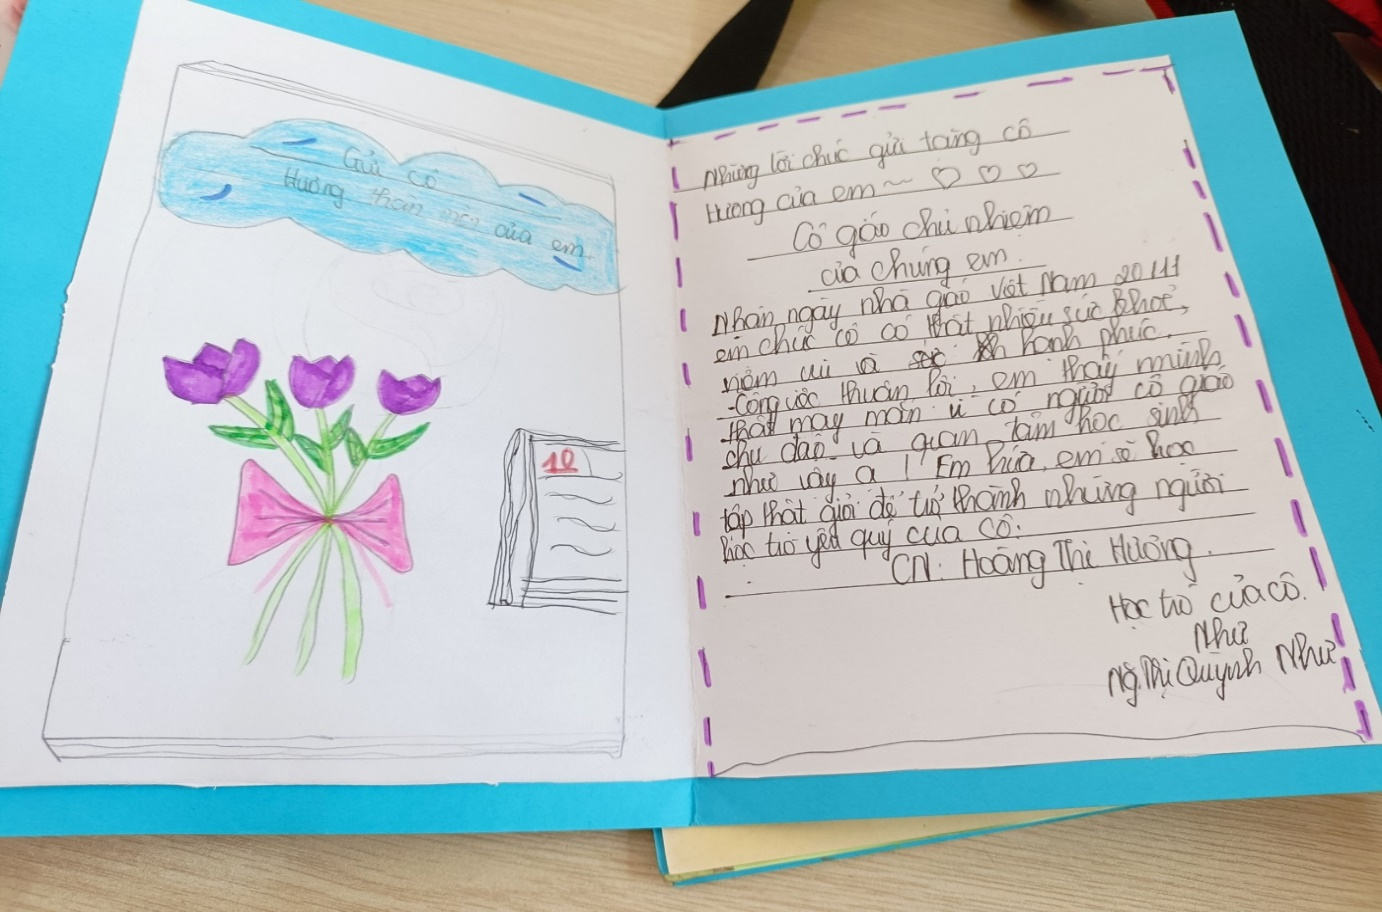 Gửi cô
Hương thân mến của em
10
Những lời chúc gửi tặng cô
Hương của em ~ ♡ ♡ ♡
Cô gáo chủ nhiệm
của chúng em.
Nhân ngày nhà gáo Việt Nam 20/11
em chúc cô có thật nhiều sức khoẻ,
niềm vui và hạnh phúc.
- Công việc thuận lợi, em thấy mình
thật may mắn vì có người cô giáo
chu đáo và quan tâm học sinh
như vậy ạ! Em hứa, em sẽ học
tập thật giỏi để trở thành những người
học trò yêu quý của cô.
CN: Hoàng Thị Hương.
Học trò của cô.
Như
Ng.Thị Quỳnh Như